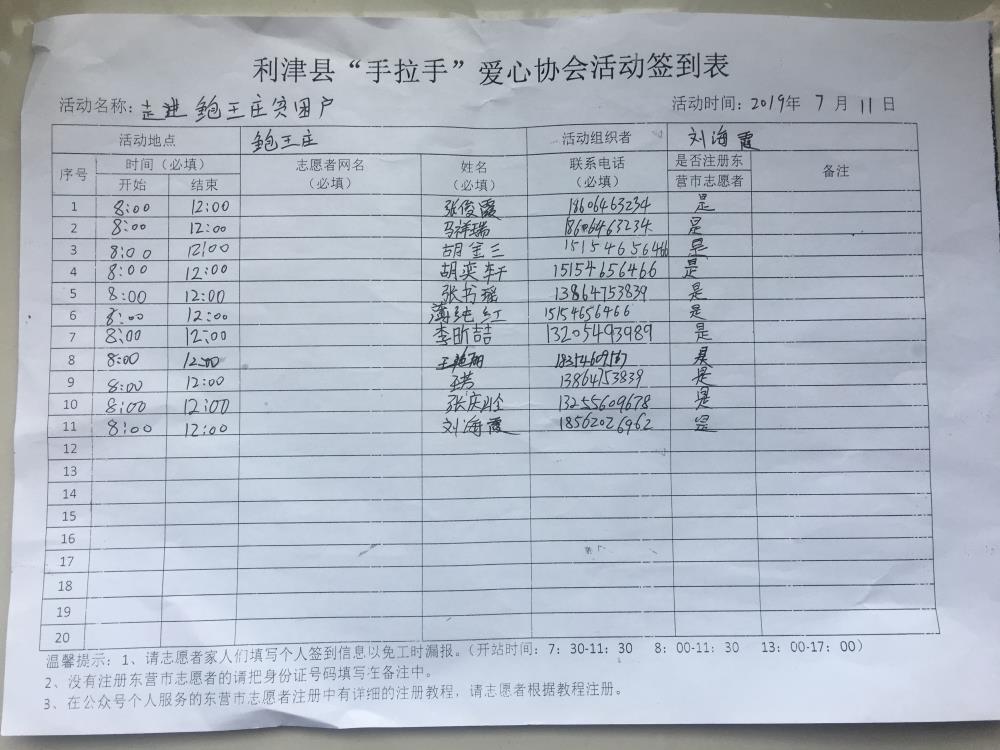 利津县“手拉手”爱心协会活动签到表
活动名称：走进鲍王庄贫困户 活动时间：2019年 7 月 11 日
活动地点 鲍王庄 活动组织者 刘海霞
序号 时间（必填） 志愿者网名（必填） 姓名（必填） 联系电话（必填） 是否注册东营市志愿者 备注
开始 结束
1 8:00 12:00 张俊霞 18606463234 是
2 8:00 12:00 马祥瑞 18606463234 是
3 8:00 12:00 胡金三 15154656466 是
4 8:00 12:00 胡奕轩 15154656466 是
5 8:00 12:00 张书瑶 13864753839 是
6 8:00 12:00 薄纯红 15154656466 是
7 8:00 12:00 李昕喆 13205493989 是
8 8:00 12:00 是
9 8:00 12:00 13864753839 是
10 8:00 12:00 13255609678 是
11 8:00 12:00 刘海霞 18562026962 是
12
13
14
15
16
17
18
19
20
温馨提示：1、请志愿者家人们填写个人签到信息以免工时漏报。（开站时间：7：30-11：30 8：00-11：30 13：00-17：00）
2、没有注册东营市志愿者的请把身份证号码填写在备注中。
3、在公众号个人服务的东营市志愿者注册中有详细的注册教程，请志愿者根据教程注册。